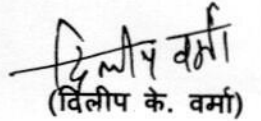 दिलीप वर्मा
(विलीप के. वर्मा)